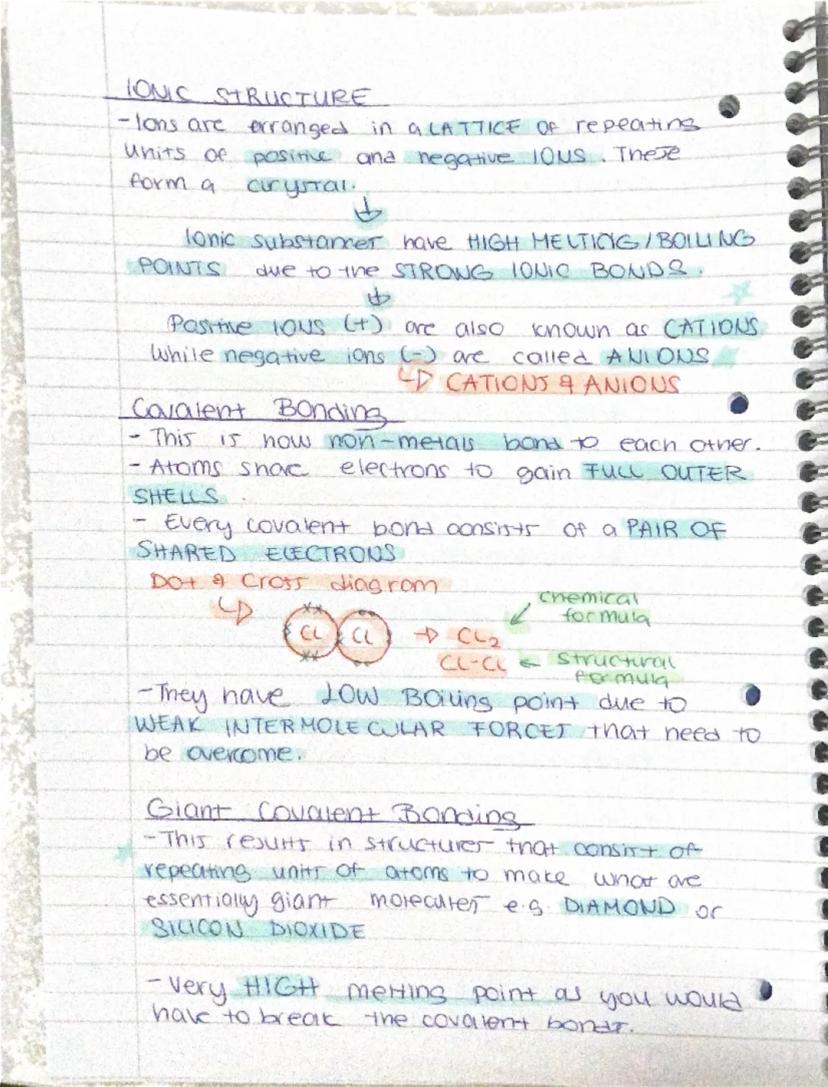 IONIC STRUCTURE
- Ions are arranged in a LATTICE of repeating
units of positive and negative IONS. These
form a crystal.
Ionic substances have HIGH MELTING/BOILING
POINTS due to the STRONG IONIC BONDS.
Positive IONS (+) are also known as CATIONS
while negative ions (-) are called ANIONS
CATIONS & ANIONS
Covalent Bonding
- This is how non-metals bond to each other.
- Atoms share electrons to gain FULL OUTER
SHELLS.
- Every covalent bond consists of a PAIR OF
SHARED ELECTRONS
Dot & Cross diagram
chemical
formula
Cl Cl → Cl₂
Cl-Cl ← structural
formula
- They have LOW Boiling point due to
WEAK INTERMOLECULAR FORCES that need to
be overcome.
Giant Covalent Bonding
- This results in structures that consist of
repeating units of atoms to make what are
essentially giant molecules e.g. DIAMOND or
SILICON DIOXIDE
- Very HIGH melting point as you would
have to break the covalent bonds.